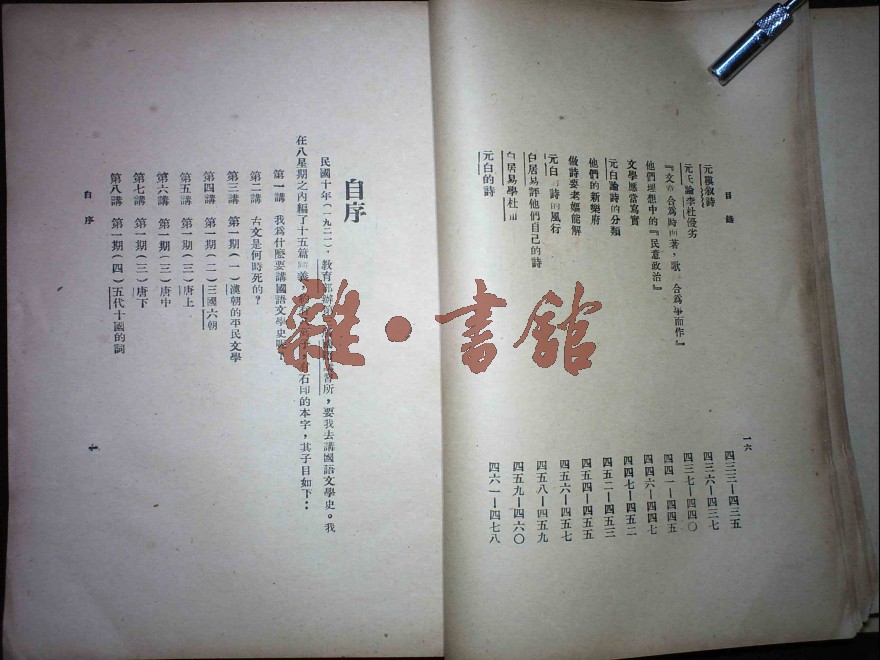 目錄
一六
元稹叙詩
四三三—四三五
元氏論李杜優劣
四三六—四三七
『文章合爲時而著，歌 合爲事而作』
四三七—四四〇
他們理想中的『民意政治』
四四一—四四五
文學應當寫實
四四六—四四七
元白論詩的分類
四四七—四五二
他們的新樂府
四五二—四五三
做詩要老嫗能解
四五四—四五五
元白 詩的風行
四五六—四五七
白居易評他們自己的詩
四五八—四五九
白居易學杜甫
四五九—四六〇
元白的詩
四六一—四七八
自序
民國十年（一九二一），教育部辦 習所，要我去講國語文學史。我
在八星期之內編了十五篇講義， 石印的本字，其子目如下：
第一講 我爲什麼要講國語文學史
第二講 古文是何時死的？
第三講 第一期（一）漢朝的平民文學
第四講 第一期（二）三國六朝
第五講 第一期（三）唐上
第六講 第一期（三）唐中
第七講 第一期（三）唐下
第八講 第一期（四）五代十國的詞
自序
一
雜·書館